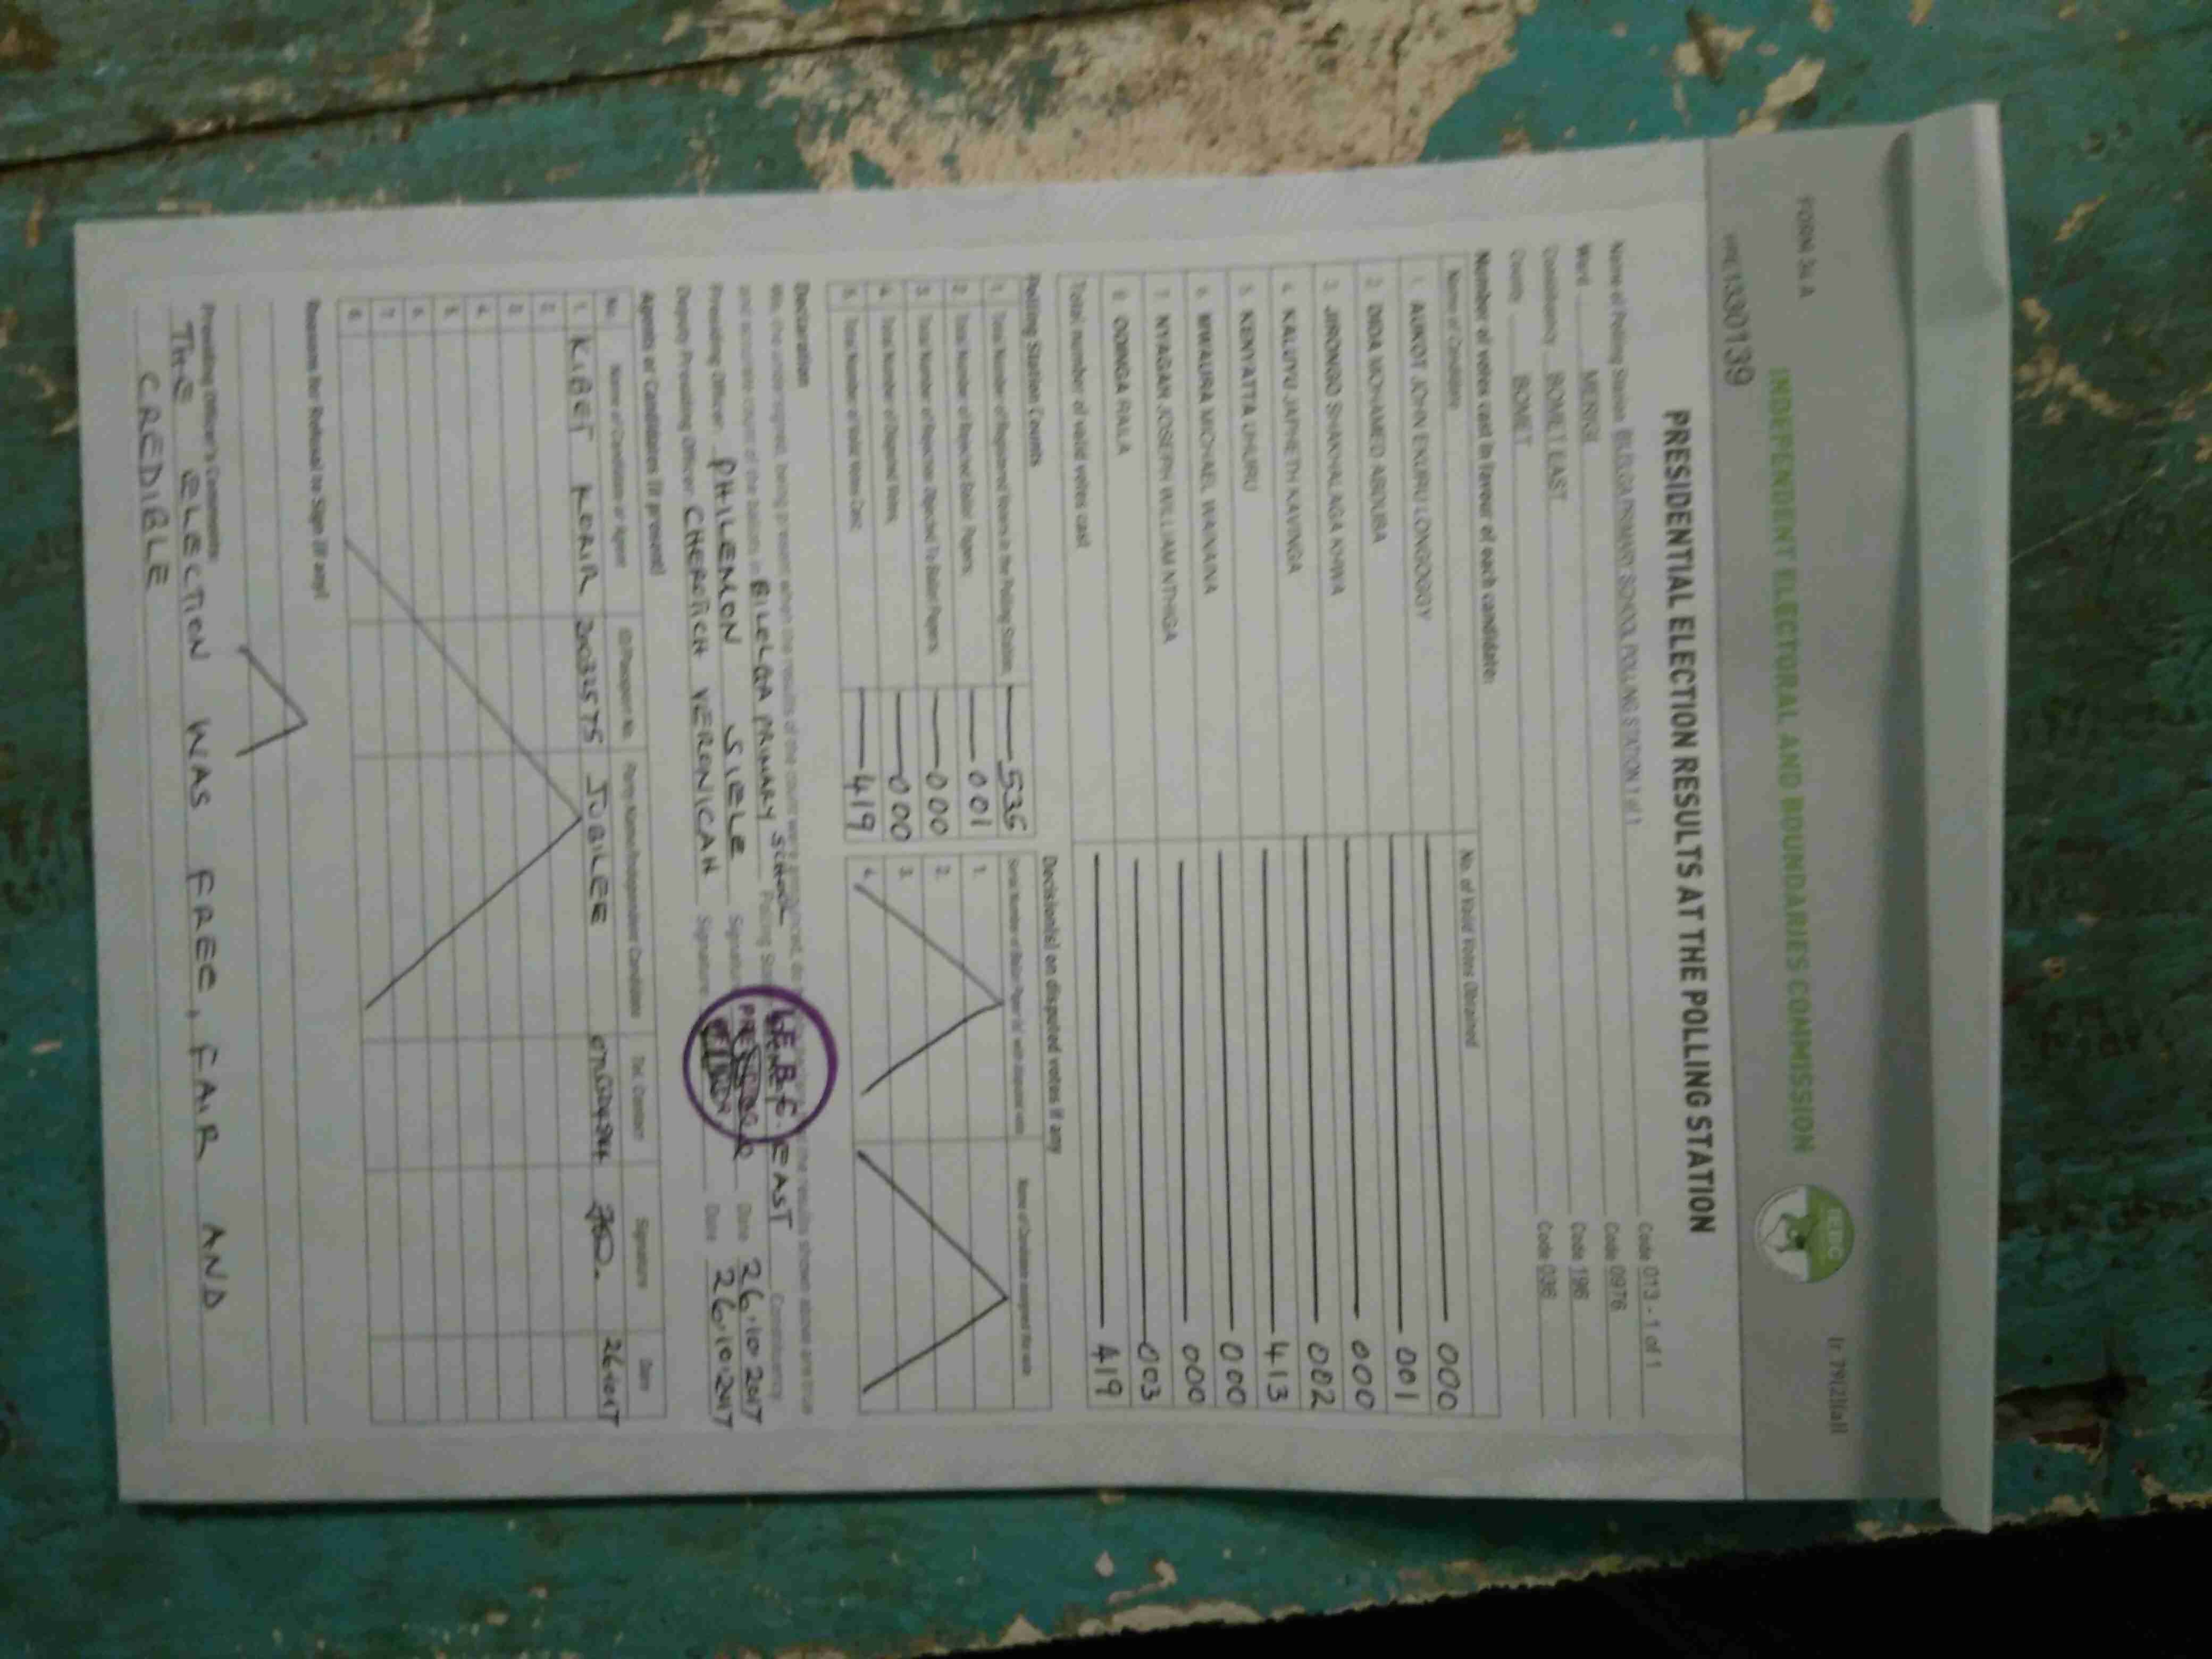 FORM 34A
INDEPENDENT ELECTORAL AND BOUNDARIES COMMISSION
IEBC
1330139
PRESIDENTIAL ELECTION RESULTS AT THE POLLING STATION
Name of Polling Station PRIMARY SCHOOL POLLING STATION 1 of 1 Code 013 - 1 of 1
Ward MERIGI Code 0976
Constituency BOMET EAST Code 196
County BOMET Code 036
Number of votes cast in favour of each candidate:
Name of Candidate No. of Valid Votes Obtained
1. AUKOT JOHN EKURU LONGOGGY 000
2. DIDA MOHAMED ABDUBA 001
3. JIRONGO SHAKHALAGA KHWA 000
4. KALUYU JAPHETH KAVINGA 002
5. KENYATTA UHURU 413
6. MWAURA MICHAEL WAINAINA 000
7. NYAGAH JOSEPH WILLIAM NTHIGA 000
8. ODINGA RAILA 003
Total number of valid votes cast 419
Polling Station Counts Decision(s) on disputed votes if any
1. Total Number of Registered Voters in the Polling Station 536
2. Total Number of Rejected Ballot Papers 001
3. Total Number of Rejection Objected To Ballot Papers 000
4. Total Number of Disputed Votes 000
5. Total Number of Valid Votes Cast 419
Serial Number of Ballot Paper(s) with disputed vote Name of Candidate assigned the vote
1.
2.
3.
4.
Declaration
We, the undersigned, being present when the results of the count were announced, do the results shown above are true
and accurate count of the ballots in PRIMARY SCHOOL Polling EAST Constituency
Presiding Officer: PHILEMON SIELE Signature Date 26.10.2017
Deputy Presiding Officer: VERONICAH Signature Date 26.10.2017
I.E.B.C.
Agents or Candidates (if present)
No. Name of Candidate or Agent ID/Passport No. Party Name/Independent Candidate Tel. Contact Signature Date
1. KIBET KORIR JUBILEE
2.
3.
4.
5.
6.
7.
8.
Reasons for Refusal to Sign (if any)
Presiding Officer's Comments
THE ELECTION WAS FREE, FAIR AND
CREDIBLE